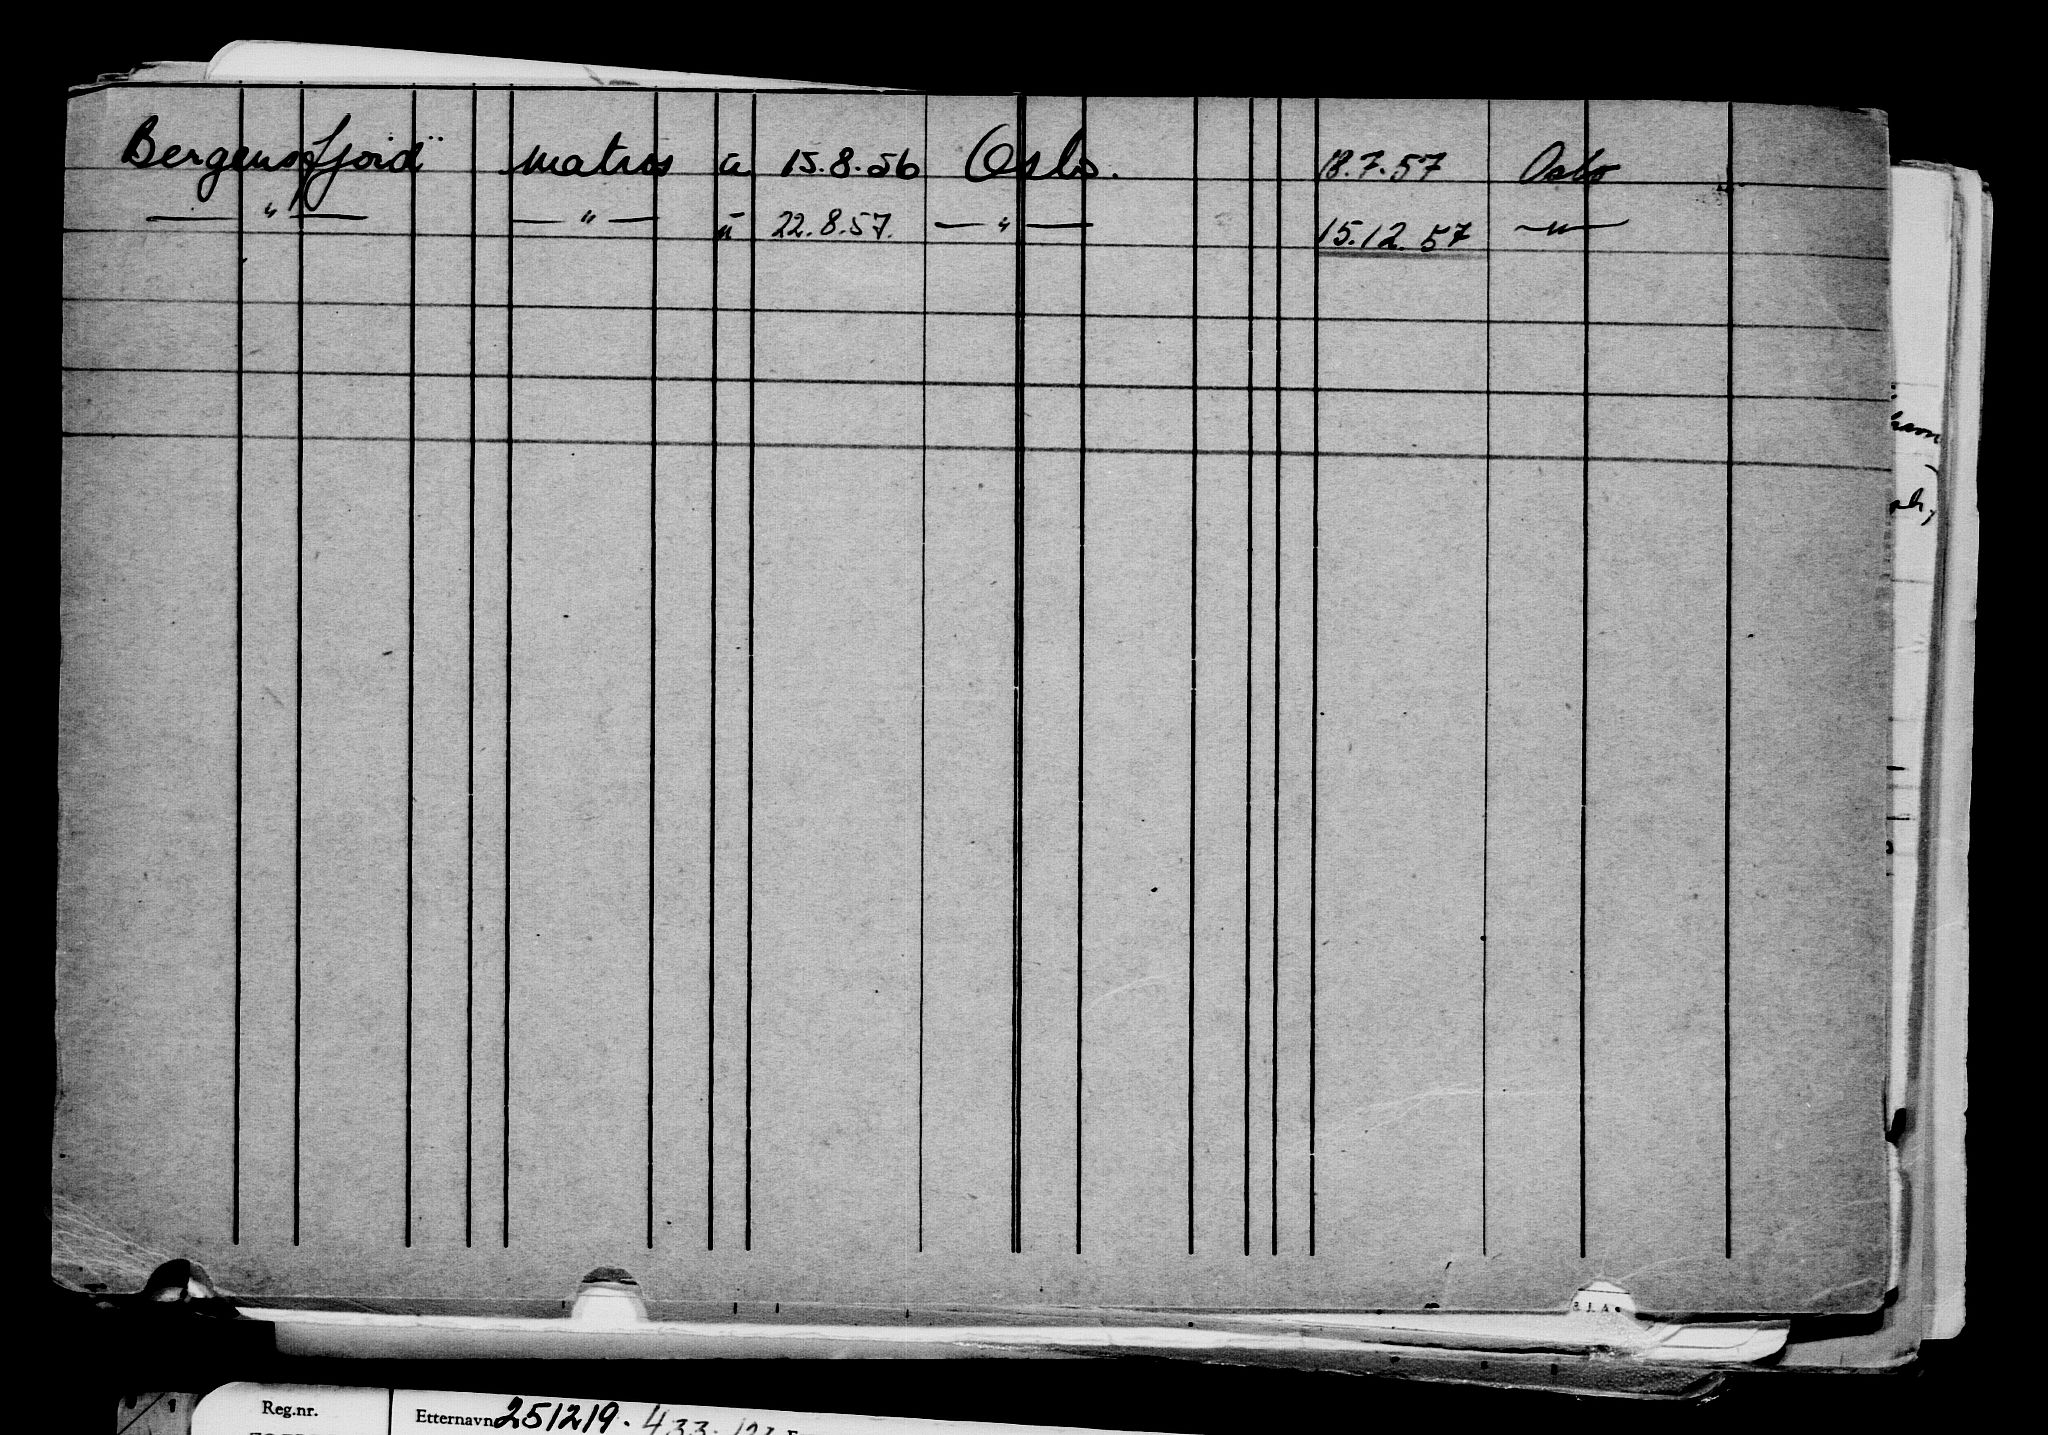 Bergensfjord" matros a 15.8.56 Oslo. 18.7.57 Oslo
— " — — " — " 22.8.57. — " — 15.12.57 — " —
Reg.nr. Etternavn 251219. 433.